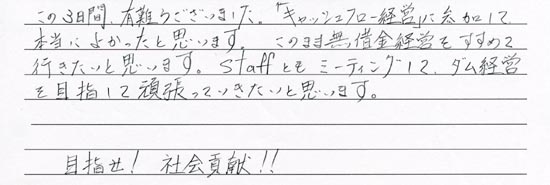 この3日間、有難うございました。「キャッシュフロー経営」に参加して
本当によかったと思います。このまま無借金経営をすすめて
行きたいと思います。Staffともミーティングして、ダム経営
を目指して頑張っていきたいと思います。
目指せ! 社会貢献!!